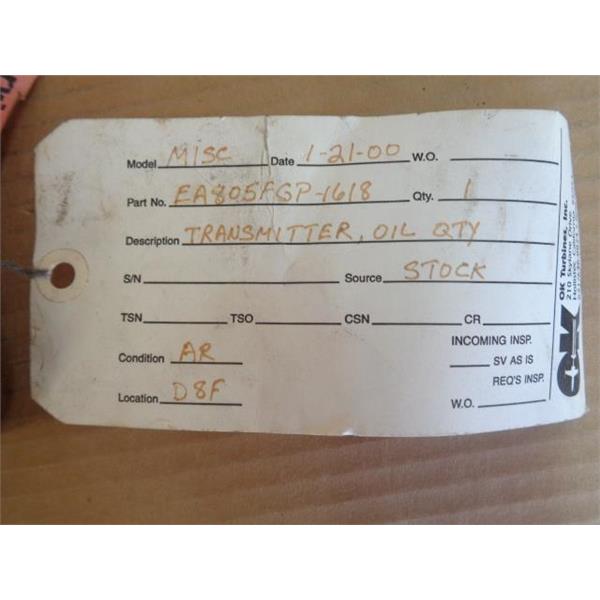 Model MISC Date 1-21-00 W.O.
Part No. EA805FGP-1618 Qty. 1
Description TRANSMITTER, OIL QTY
S/N Source STOCK
TSN TSO CSN CR
Condition AR
INCOMING INSP.
SV AS IS
REQ'S INSP.
Location D8F
W.O.
OK
OK Turbines, Inc.
210 Skylane Drive